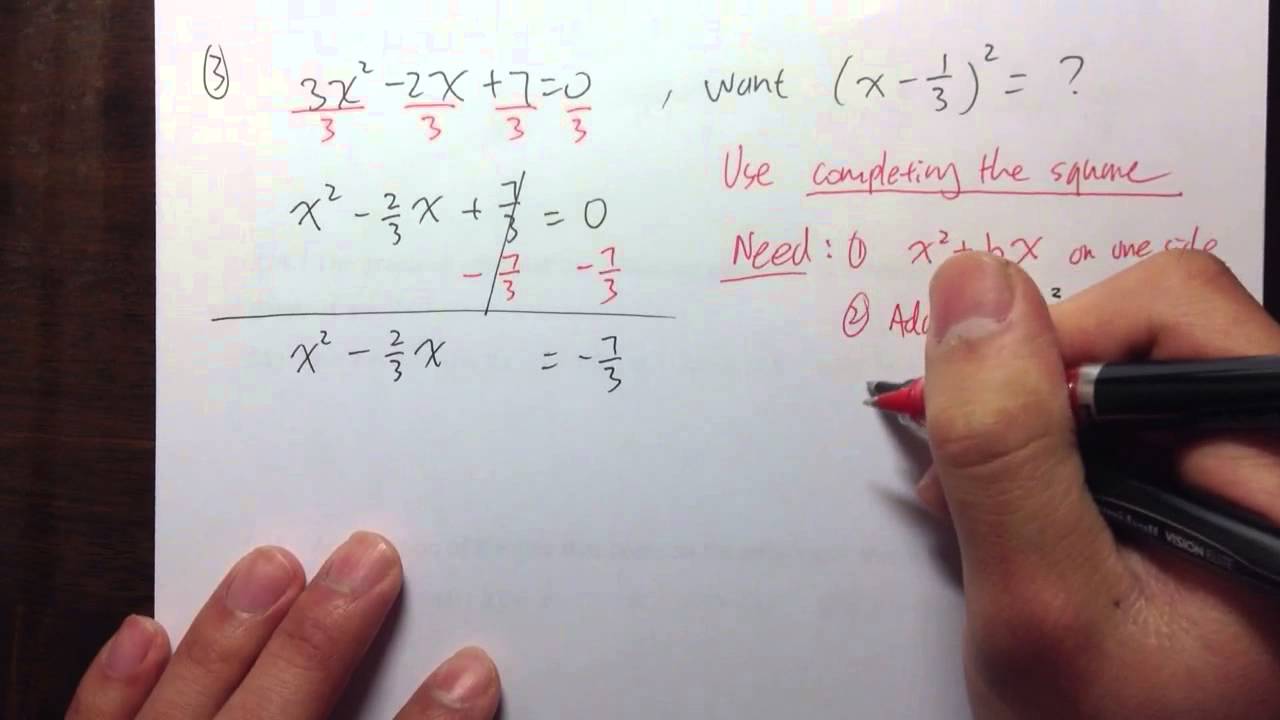 ③ 3x² - 2x + 7 = 0 , want (x - 1/3)² = ?
3 3 3 3
Use completing the square
x² - 2/3 x + 7/3 = 0
Need : ① x² + bx on one side
- 7/3 - 7/3
② 2
x² - 2/3 x = - 7/3
VISION